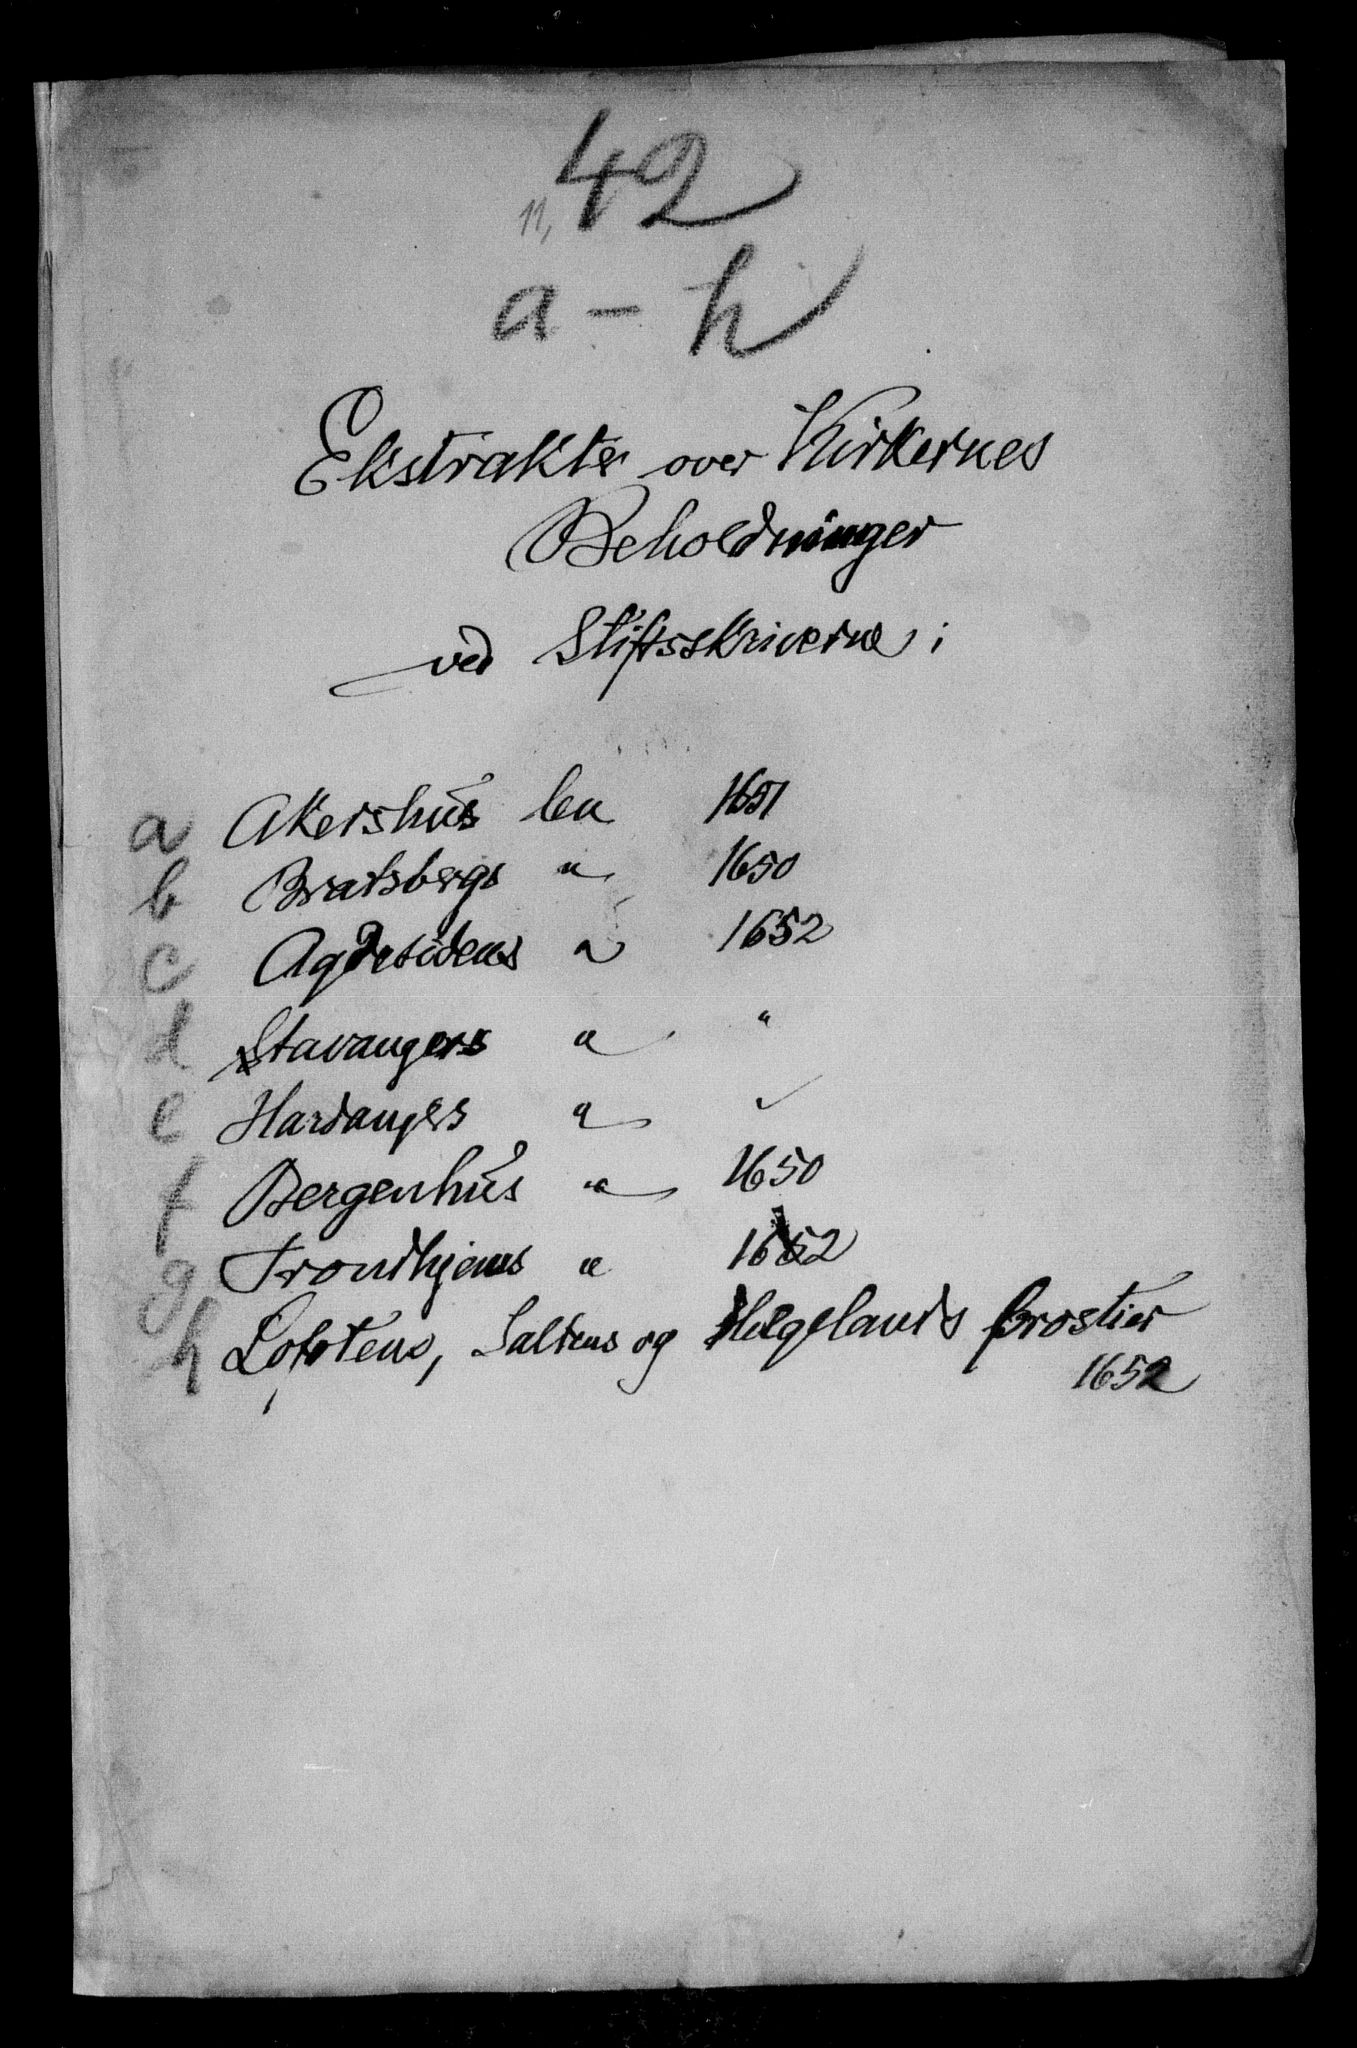 11, 42
a - h
Ekstrakter over Kirkernes
Beholdninger
ved Stiftsskriverne i
a Akershus len 1651
b Bratsbergs " 1650
c Agdesidens " 1652
d Stavangers " "
e Hardangers " "
f Bergenhus " 1650
g Trondhjems " 1652
h Lofotens, Saltens og Helgelands Provstier
1652